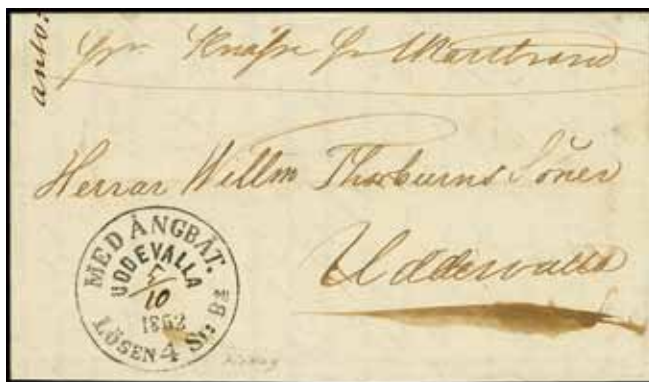 anto:
Marstrand
Herrar Willm Thorburns Söner
Uddevalla
MED ÅNGBÅT.
UDDEVALLA
5/10
LÖSEN 4 Sk: B